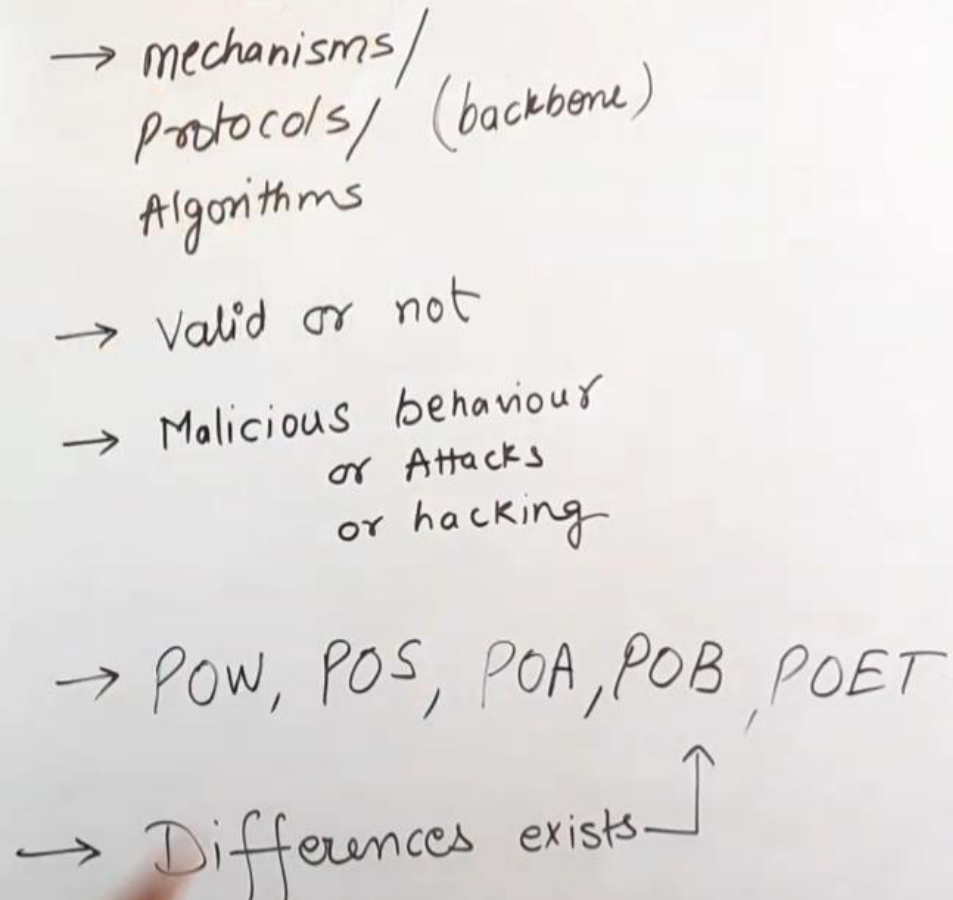 → mechanisms/
Protocols/ (backbone)
Algorithms
→ Valid or not
→ Malicious behaviour
or Attacks
or hacking
→ POW, POS, POA, POB, POET
→ Differences exists